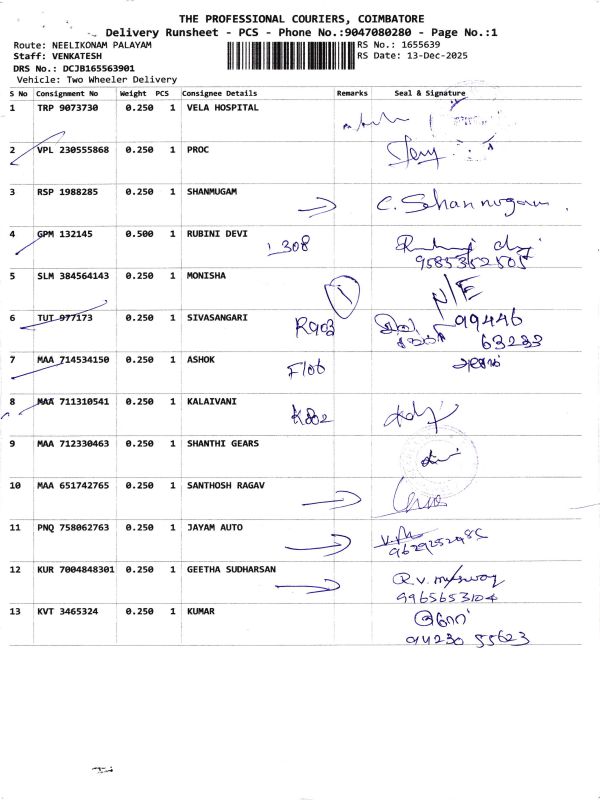 THE PROFESSIONAL COURIERS, COIMBATORE
Delivery Runsheet - PCS - Phone No.:9047080280 - Page No.:1
Route: NEELIKONAM PALAYAM RS No.: 1655639
Staff: VENKATESH RS Date: 13-Dec-2025
DRS No.: DCJB165563901
Vehicle: Two Wheeler Delivery
S No Consignment No Weight PCS Consignee Details Remarks Seal & Signature
1 TRP 9073730 0.250 1 VELA HOSPITAL
2 VPL 230555868 0.250 1 PROC
3 RSP 1988285 0.250 1 SHANMUGAM
4 GPM 132145 0.500 1 RUBINI DEVI 308
9585352505
5 SLM 384564143 0.250 1 MONISHA N/E
6 TUT 977173 0.250 1 SIVASANGARI R903 99446
63233
7 MAA 714534150 0.250 1 ASHOK F106
8 MAA 711310541 0.250 1 KALAIVANI K802
9 MAA 712330463 0.250 1 SHANTHI GEARS
10 MAA 651742765 0.250 1 SANTHOSH RAGAV
11 PNQ 758062763 0.250 1 JAYAM AUTO
12 KUR 7004848301 0.250 1 GEETHA SUDHARSAN
9965653104
13 KVT 3465324 0.250 1 KUMAR
94230 55623